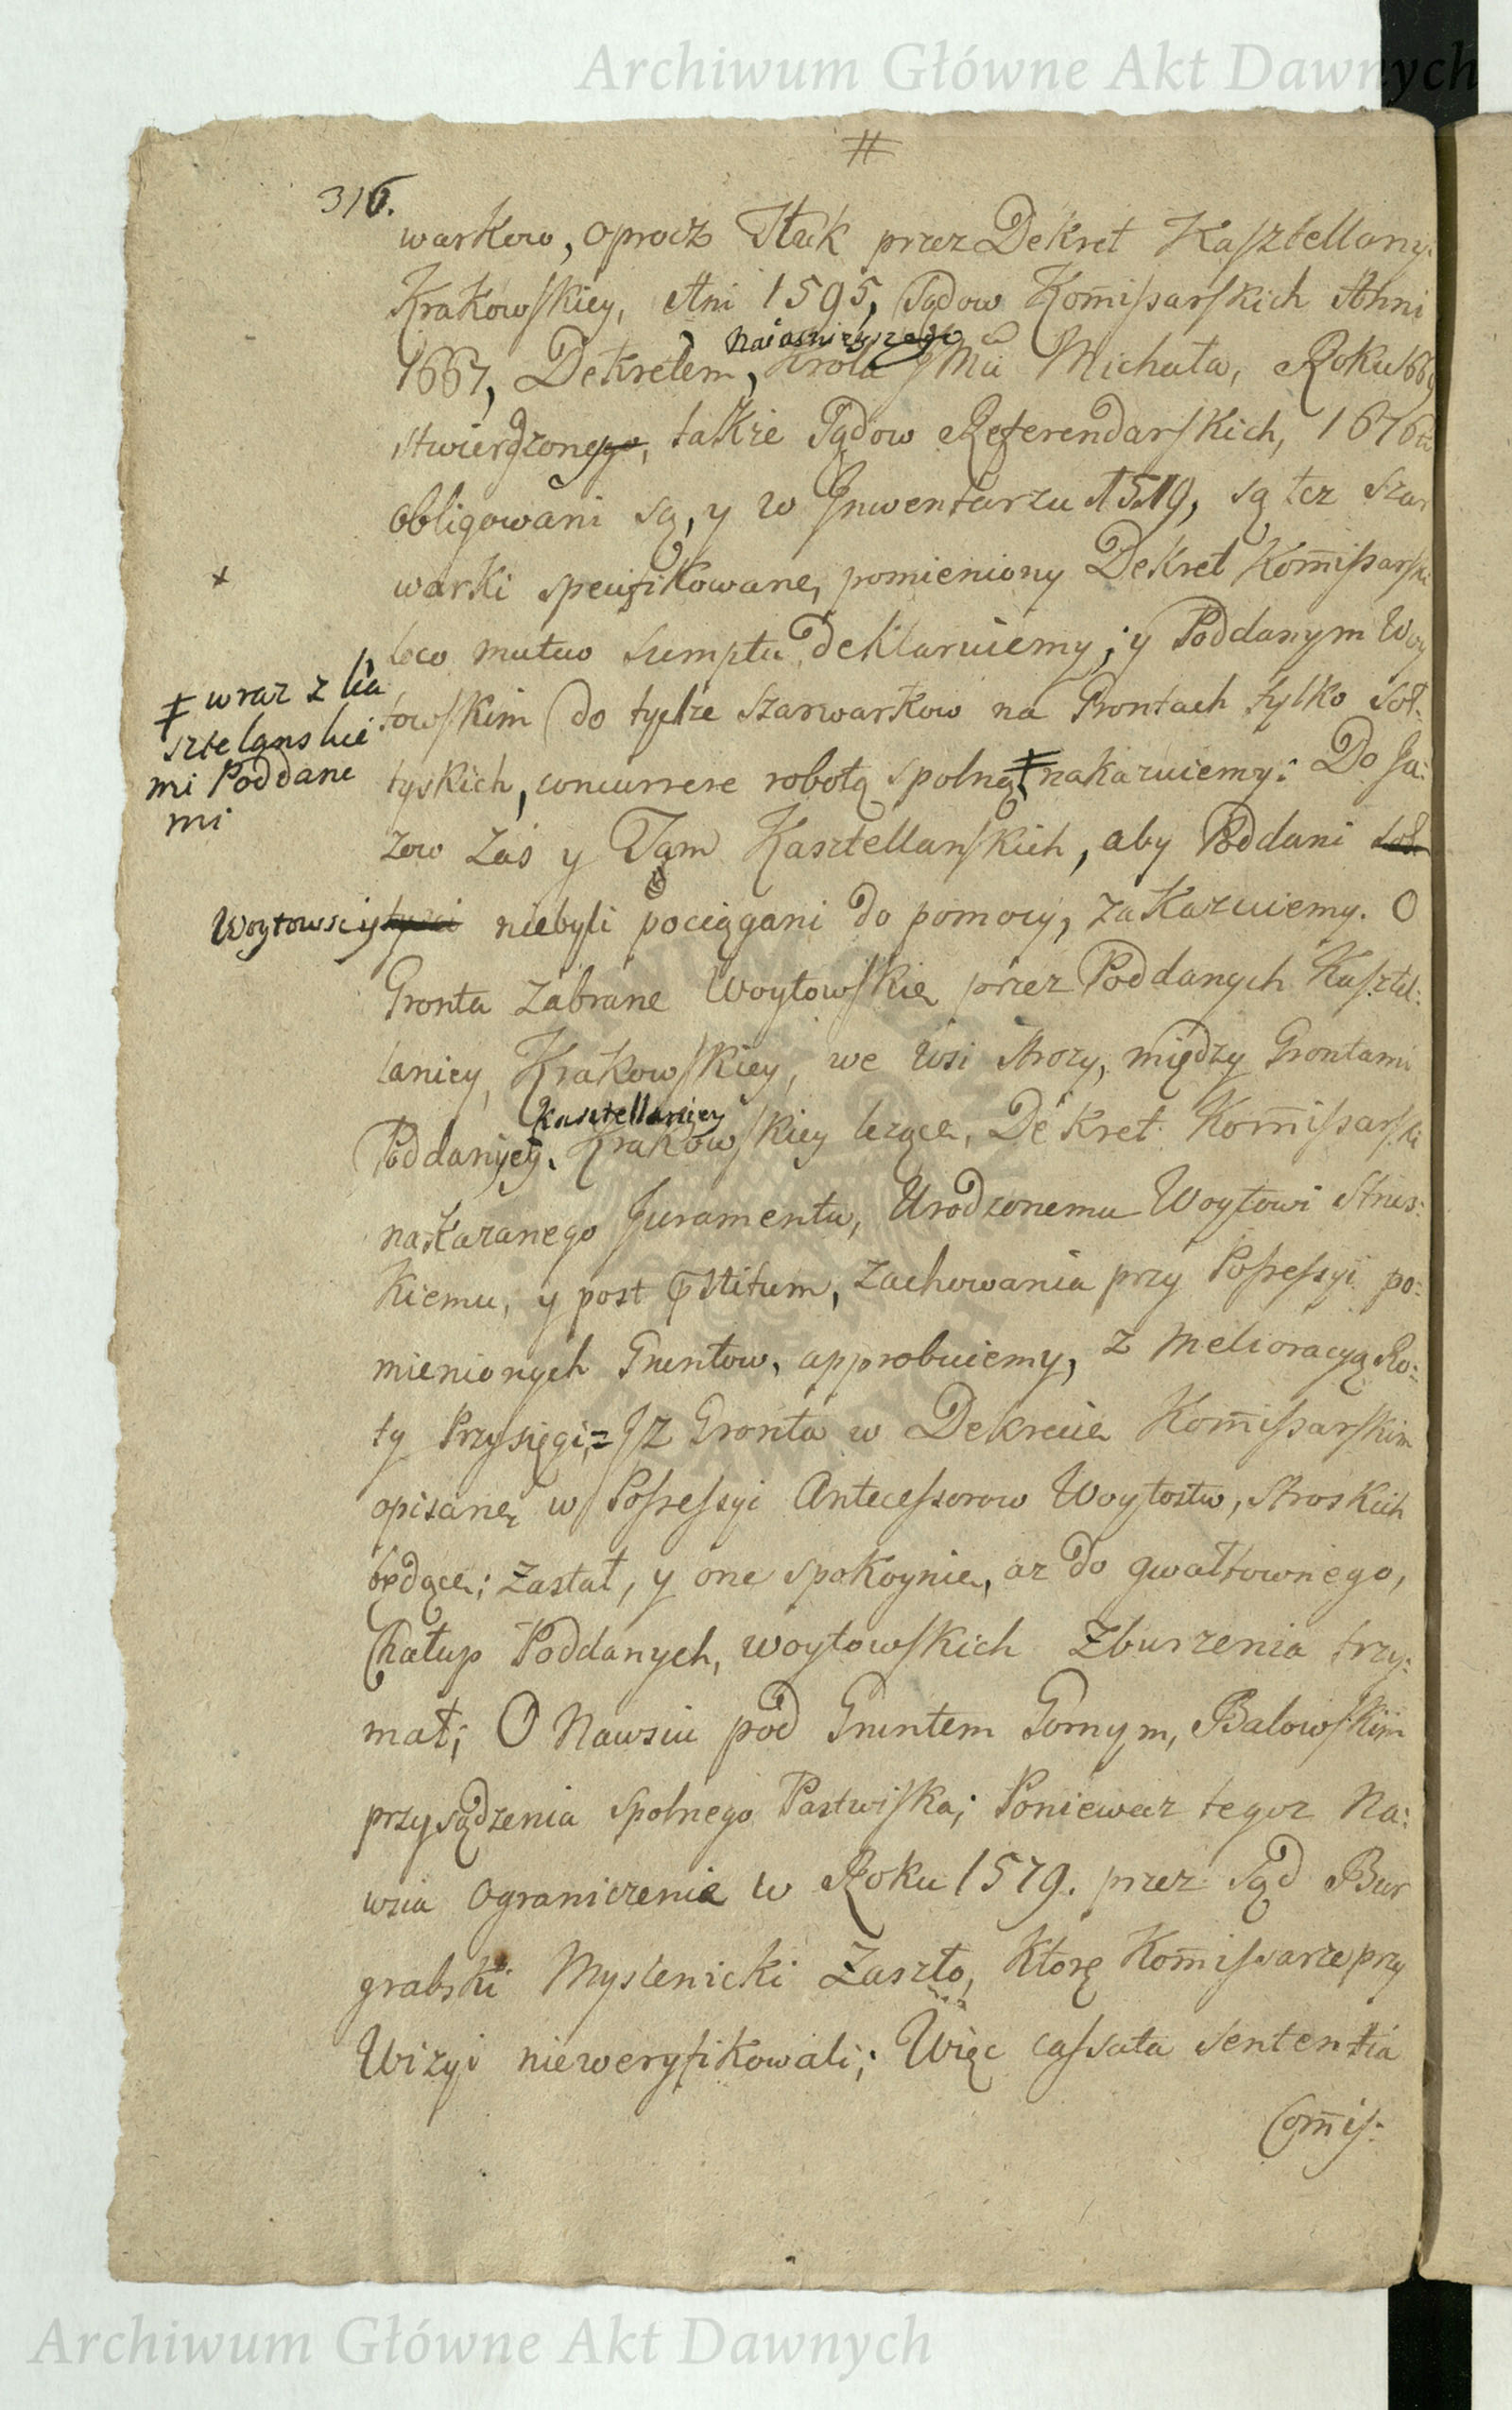 Archiwum Główne Akt Dawnych
#
316.
warkow, oprocz Stuk przez Dekret Kasztellany:
Krakowskiey, Ani 1595, Sądow Kom̄issarskich Anni
Naiasnieyszego
1667, Dekretem, Krola JMci Michała, Roku 1669
stwierdzonego, także Sądow Referendarskich, 1676to
obligowani są, y w Jnwentarzu 1519, są tez szar
x
warki specifikowane, pomieniony Dekret Kom̄issarski
loco mutuo sumptu deklaruiemy; y Poddanym Woy
ǂ wraz z ka
sztelanskie
mi Poddane
mi
towskim do tychże szarwarkow na Grontach tylko Soł:
tyskich, concurrere robotą spolną ǂ nakazuiemy: Do Ja:
zow zaś y Tam Kasztellanskich, aby Poddani soł
Woytowscy tysci niebyli pociągani do pomocy, zakazuiemy. O
Gronta zabrane Woytowskie przez Poddanych Kasztel:
laniey, Krakowskiey, we Wsi Strozy, między Grontami
Kasztellaniey
Poddanych, Krakowskiey leżące, Dekret Kom̄issarski
nakazanego Juramentu, Urodzonemu Woytowi Strus:
Kiemu, y post q̄stitum, zachowania przy Possessyi po:
mienionych Gruntow, approbuiemy, z Melioracyą Ro:
ty Przysięgi,= Jz Gronta w Dekrecie Kom̄issarskim
opisane w Possessyi Antecessorow Woytostw, Stroskich
będące; zastał, y one spokoynie, az do gwałtownego,
Chałup Poddanych, woytowskich zburzenia trzy:
mał; O Nawsiu pod Gruntem Gornym, Balowskim
przysądzenia spolnego Pastwiska; Poniewaz tegoz Na:
wsia ograniczenie w Roku 1579. przez Sąd Bur
grabski Myslenicki zaszło, ktorę Kom̄issarze przy
Wizyi nieweryfikowali; Więc cassata sententia
Com̄is:
Archiwum Główne Akt Dawnych